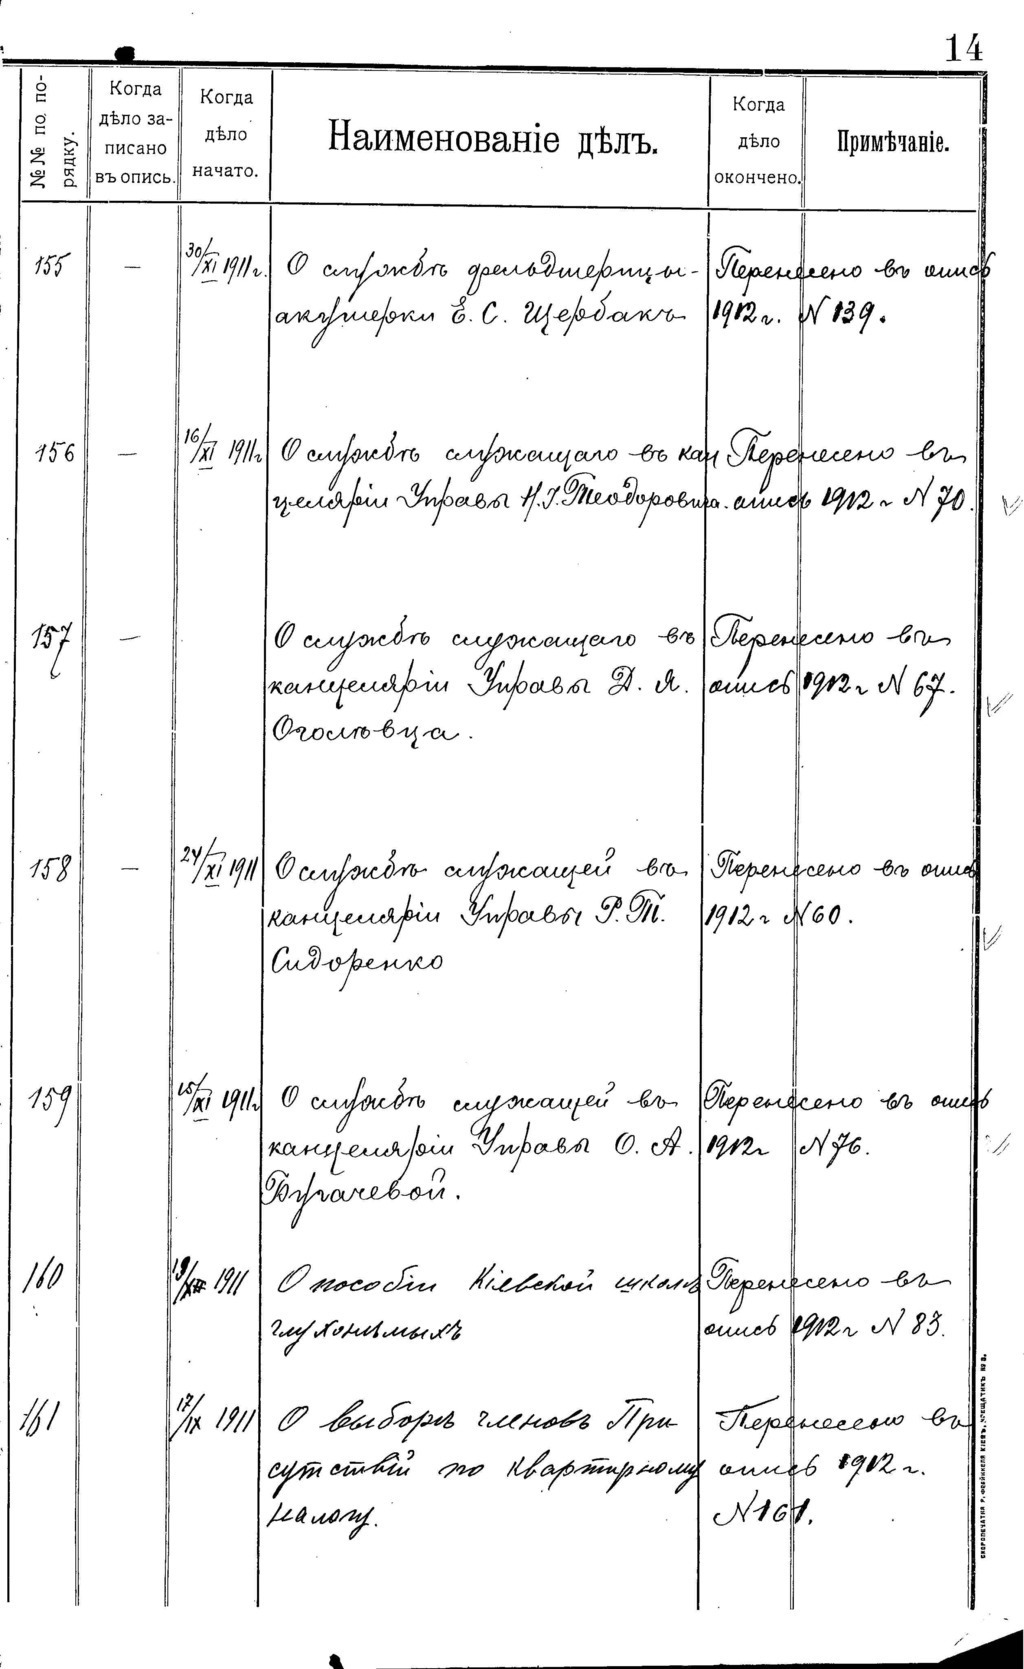 14
№№ по по-
рядку.
Когда
дѣло за-
писано
въ опись.
Когда
дѣло
начато.
Наименованіе дѣлъ.
Когда
дѣло
окончено.
Примѣчаніе.
155 — 30/XI 1911 г. О службѣ фельдшерицы- Перенесено въ опись
акушерки Е. С. Щербакъ 1912 г. N 139.
156 — 16/XI 1911 г О службѣ служащаго въ кан Перенесено въ
целяріи Управы Н. І. Теодоровича. опись 1912 г N 70.
157 — О службѣ служащаго въ Перенесено въ
канцеляріи Управы Д. Я. опись 1912 г N 67.
Оголѣвца.
158 — 24/XI 1911 О службѣ служащей въ Перенесено въ опись
канцеляріи Управы Р. Т. 1912 г N 60.
Сидоренко
159 15/XI 1911 г О службѣ служащей въ Перенесено въ опись
канцеляріи Управы О. А. 1912 г N 76.
Бугачевой.
160 1911 О пособіи Кіевской школѣ Перенесено въ
глухонѣмыхъ опись 1912 г N 83.
161 17/IX 1911 О выборѣ членовъ При Перенесено въ
сутствій по квартирному опись 1912 г.
налогу. N 161.
СКОРОПЕЧАТНЯ Р. КІЕВЪ, КРЕЩАТИКЪ